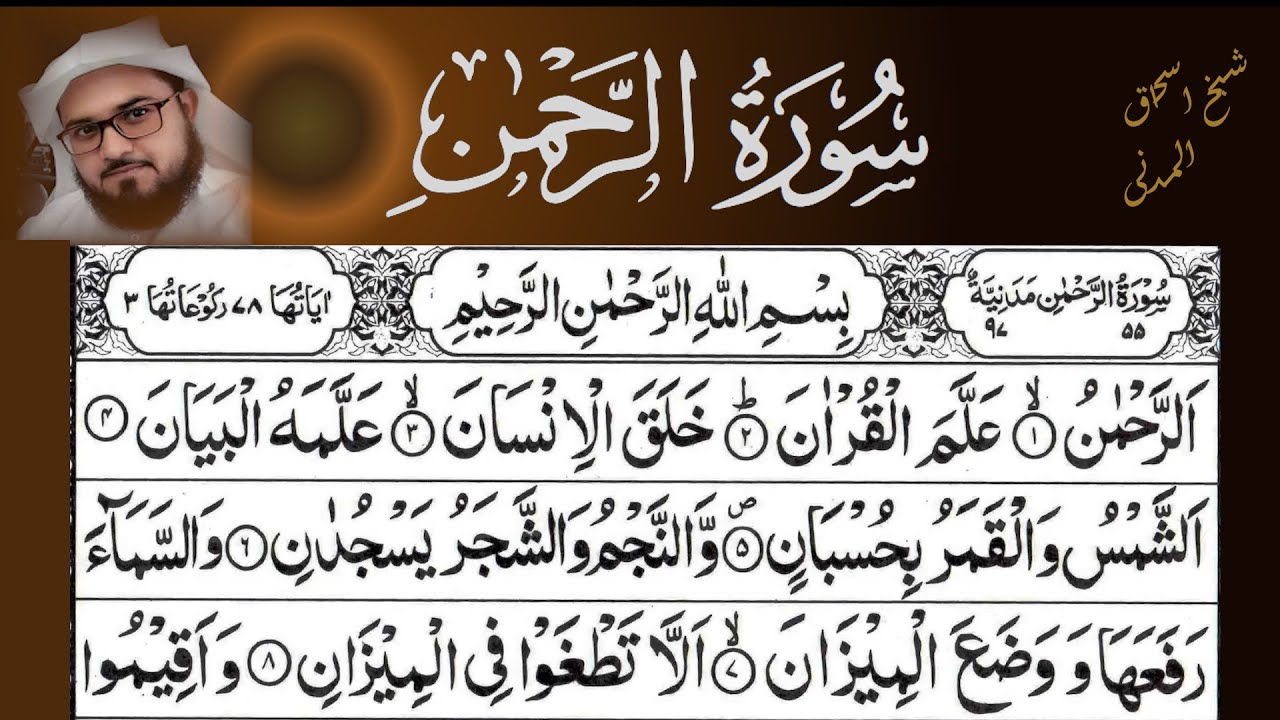 سُورَةُ الرَّحْمٰنِ
شیخ اسحاق
المدنی
سُوْرَةُ الرَّحْمٰنِ مَدَنِيَّةٌ
۵۵ ۹۷
بِسْمِ اللهِ الرَّحْمٰنِ الرَّحِيْمِ
اٰيَاتُهَا ۷۸ رَكُوْعَاتُهَا ۳
اَلرَّحْمٰنُ ۙ﴿۱﴾ عَلَّمَ الْقُرْاٰنَ ؕ﴿۲﴾ خَلَقَ الْاِنْسَانَ ۙ﴿۳﴾ عَلَّمَهُ الْبَيَانَ ﴿۴﴾
اَلشَّمْسُ وَالْقَمَرُ بِحُسْبَانٍ ۪﴿۵﴾ وَّالنَّجْمُ وَالشَّجَرُ يَسْجُدٰنِ ﴿۶﴾ وَالسَّمَآءَ
رَفَعَهَا وَ وَضَعَ الْمِيْزَانَ ۙ﴿۷﴾ اَلَّا تَطْغَوْا فِى الْمِيْزَانِ ﴿۸﴾ وَاَقِيْمُوا